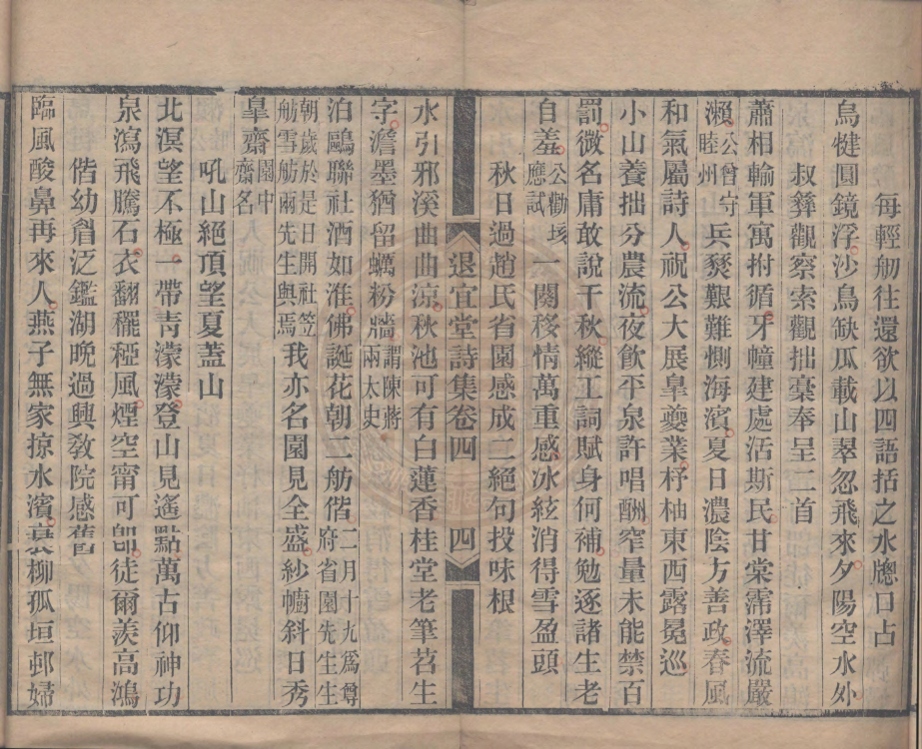 每輕舠往還欲以四語括之水牕口占
烏健圓鏡浮沙鳥缺瓜載山翠忽飛來夕陽空水外
叔彝觀察索觀拙稾奉呈二首
蕭相輸軍寓拊循牙幢建處活斯民甘棠霈澤流嚴
瀨公曾守睦州兵燹艱難惻海濱夏日濃陰方善政春風
和氣屬詩人祝公大展皐夔業杼柚東西露冕巡
小山養拙分農流夜飲平泉許唱酬窄量未能禁百
罰微名庸敢說千秋縱工詞賦身何補勉逐諸生老
自羞公勸垓應試一闋移情萬重感冰絃消得雪盈頭
秋日過趙氏省園感成二絕句投味根
退宜堂詩集卷四 四
水引邪溪曲曲涼秋池可有白蓮香桂堂老筆苕生
字澹墨猶留蠣粉牆謂陳蔣兩太史
泊鷗聯社酒如淮佛誕花朝二舫偕二月十九爲尊府省園先生生
朝歲於是日開社笠舫雪舫兩先生與焉我亦名園見全盛紗幮斜日秀
皐齋園中齋名
吼山絕頂望夏蓋山
北溟望不極一帶靑濛濛登山見遙點萬古仰神功
泉瀉飛騰石衣翻䆉稏風煙空甯可卽徒爾羨高鴻
偕幼眉泛鑑湖晚過興敎院感舊
臨風酸鼻再來人燕子無家掠水濱衰柳孤垣邨婦